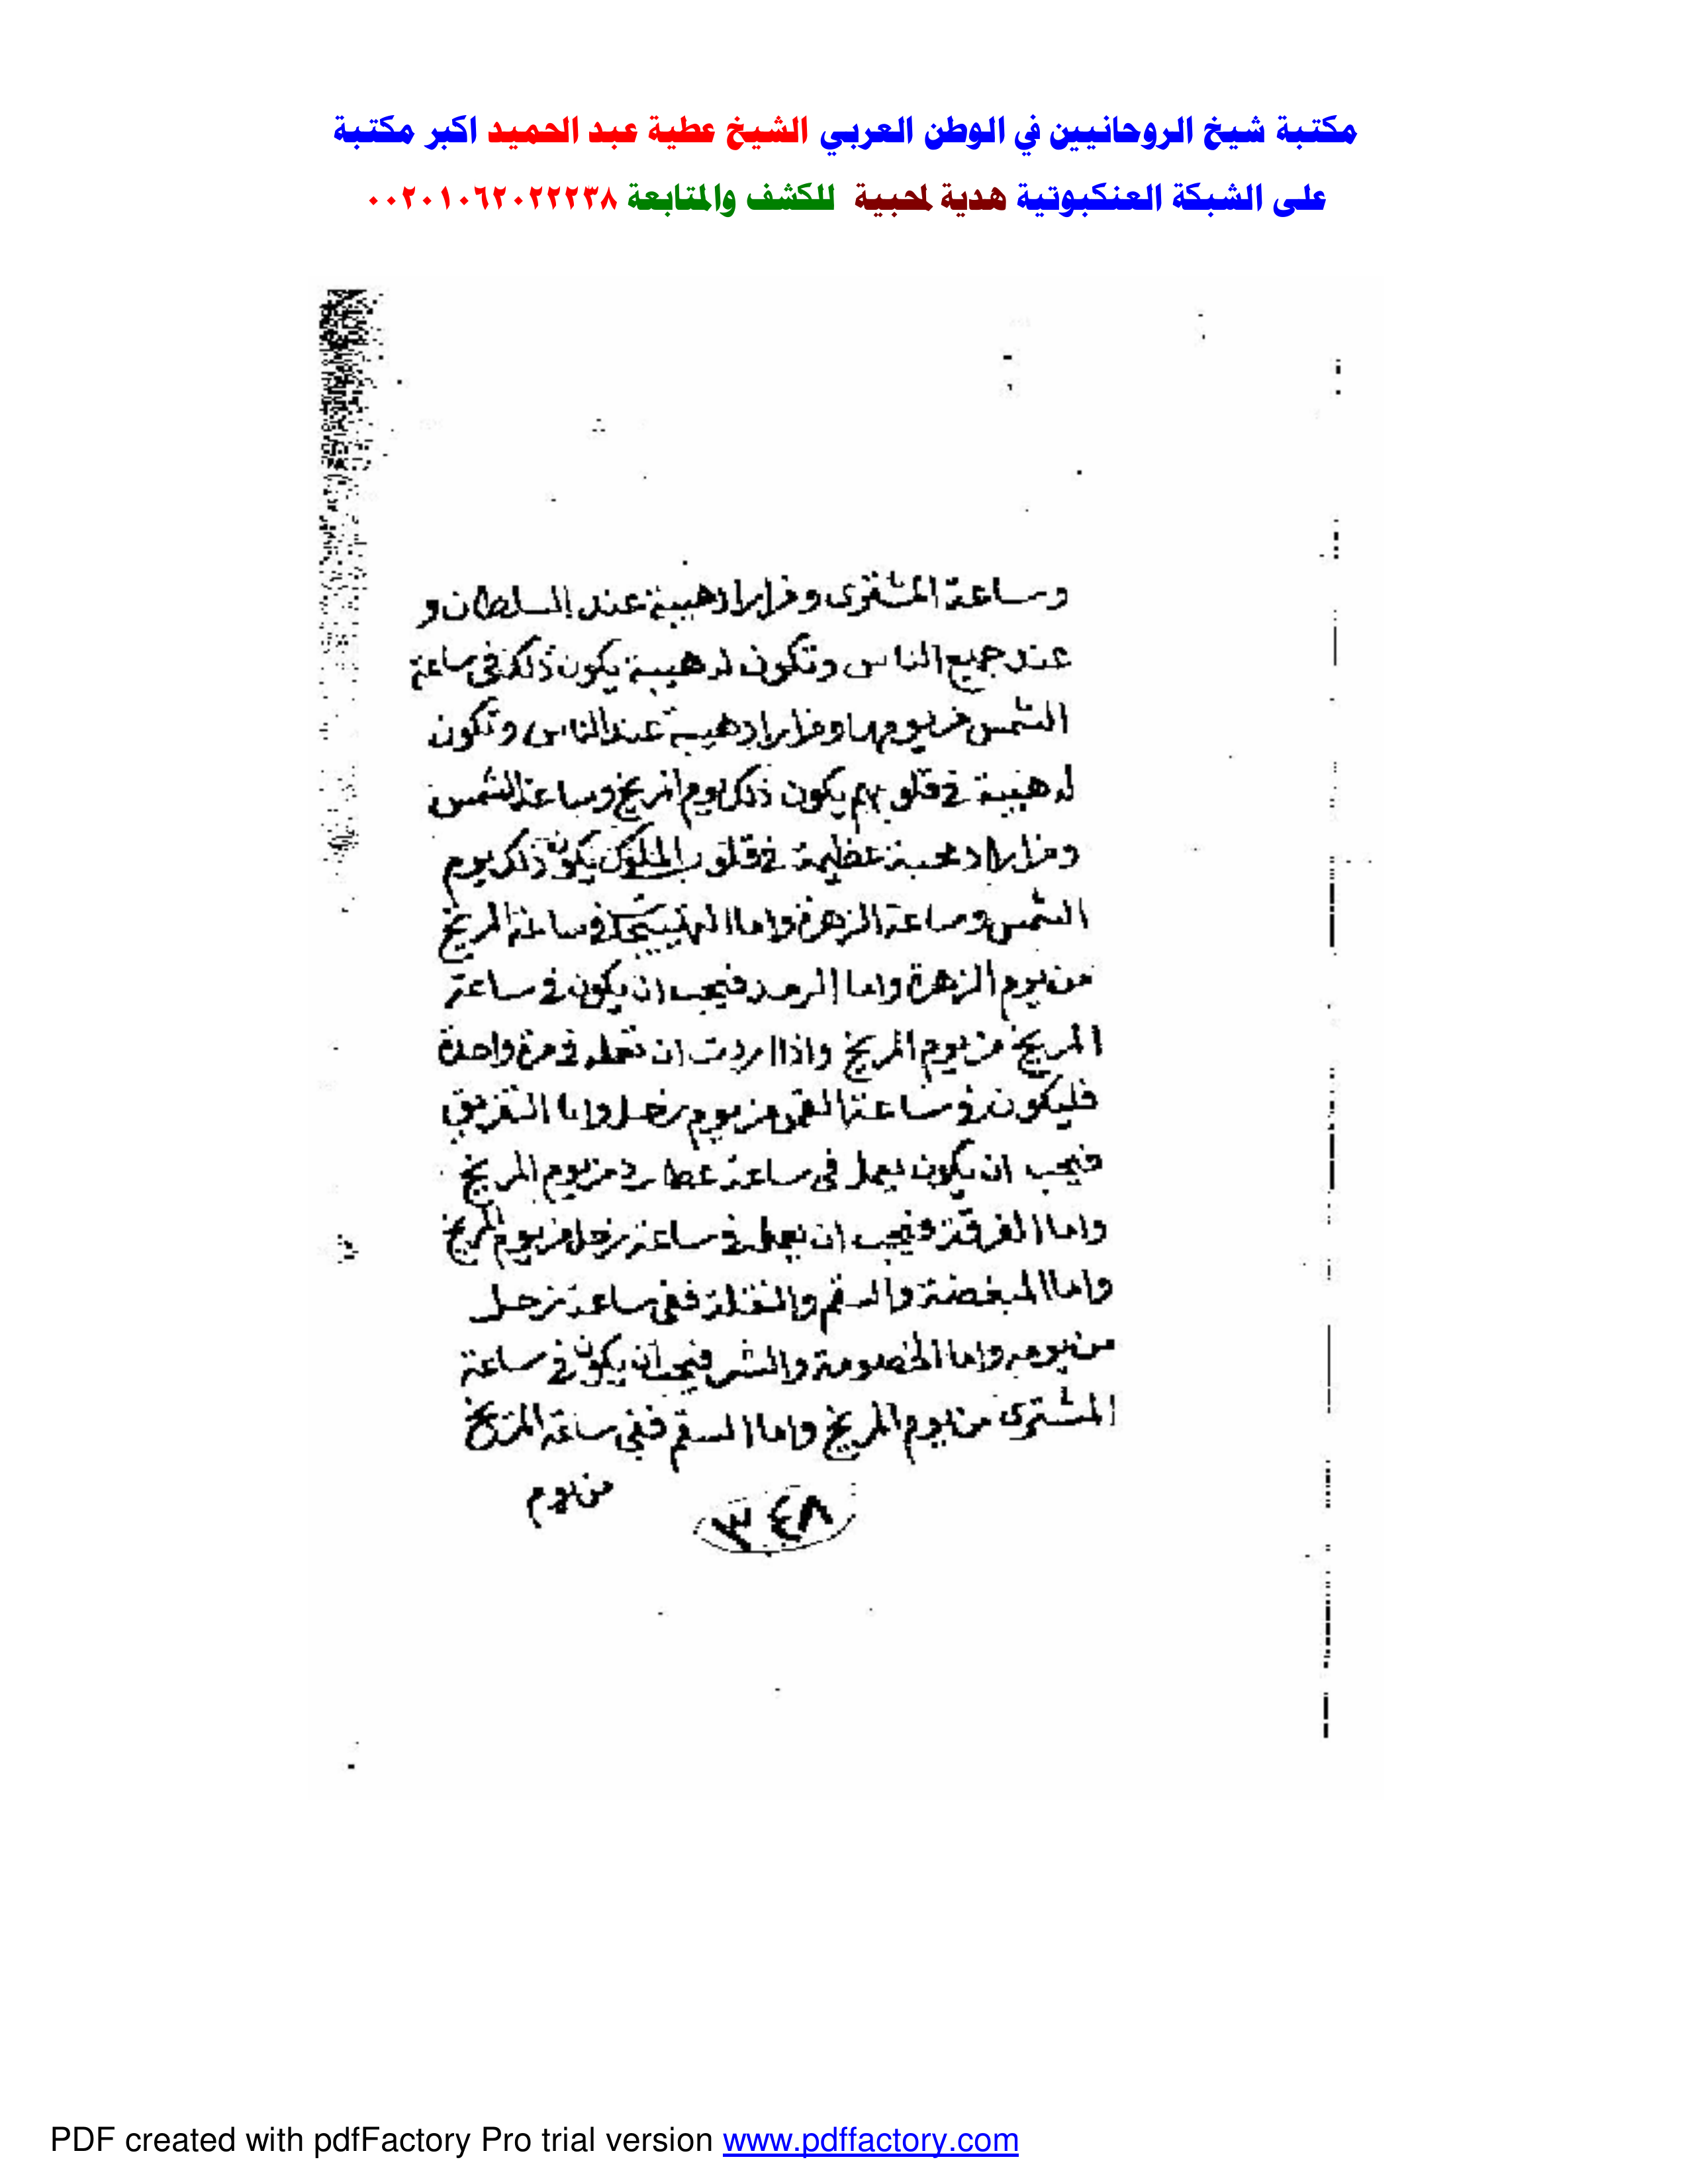 مكتبة شيخ الروحانيين في الوطن العربي الشيخ عطية عبد الحميد اكبر مكتبة
على الشبكة العنكبوتية هدية لمحبية للكشف والمتابعة ٠٠٢٠١٠٦٢٠٢٢٢٣٨
وساعة المشترى ومن اراد هيبة عند السلطان و
عند جميع الناس وتكون له هيبة يكون ذلك فى ساعة
الشمس من يومها ومن اراد هيبة عند الناس وتكون
له هيبة فى قلوبهم يكون ذلك يوم المريخ وساعة الشمس
ومن اراد محبة عظيمة فى قلوب الملوك يكون ذلك يوم
الشمس وساعة الزهرة واما فى ساعة المريخ
من يوم الزهرة واما الرمد فيجب ان يكون فى ساعة
المريخ من يوم المريخ واذا اردت ان فى مرة واحدة
فليكون فى ساعة القمر من يوم زحل واما التفريق
فيجب ان يكون يعمل فى ساعة عطارد من يوم المريخ
واما الفرقة فيجب ان يعمل فى ساعة زحل من يوم المريخ
واما المبغضة والسقم ففى ساعة زحل
من يومه واما الخصومة والشر فيجب ان يكون فى ساعة
المشترى من يوم المريخ واما السقم ففى ساعة المريخ
من يوم
٣٤٨
PDF created with pdfFactory Pro trial version www.pdffactory.com